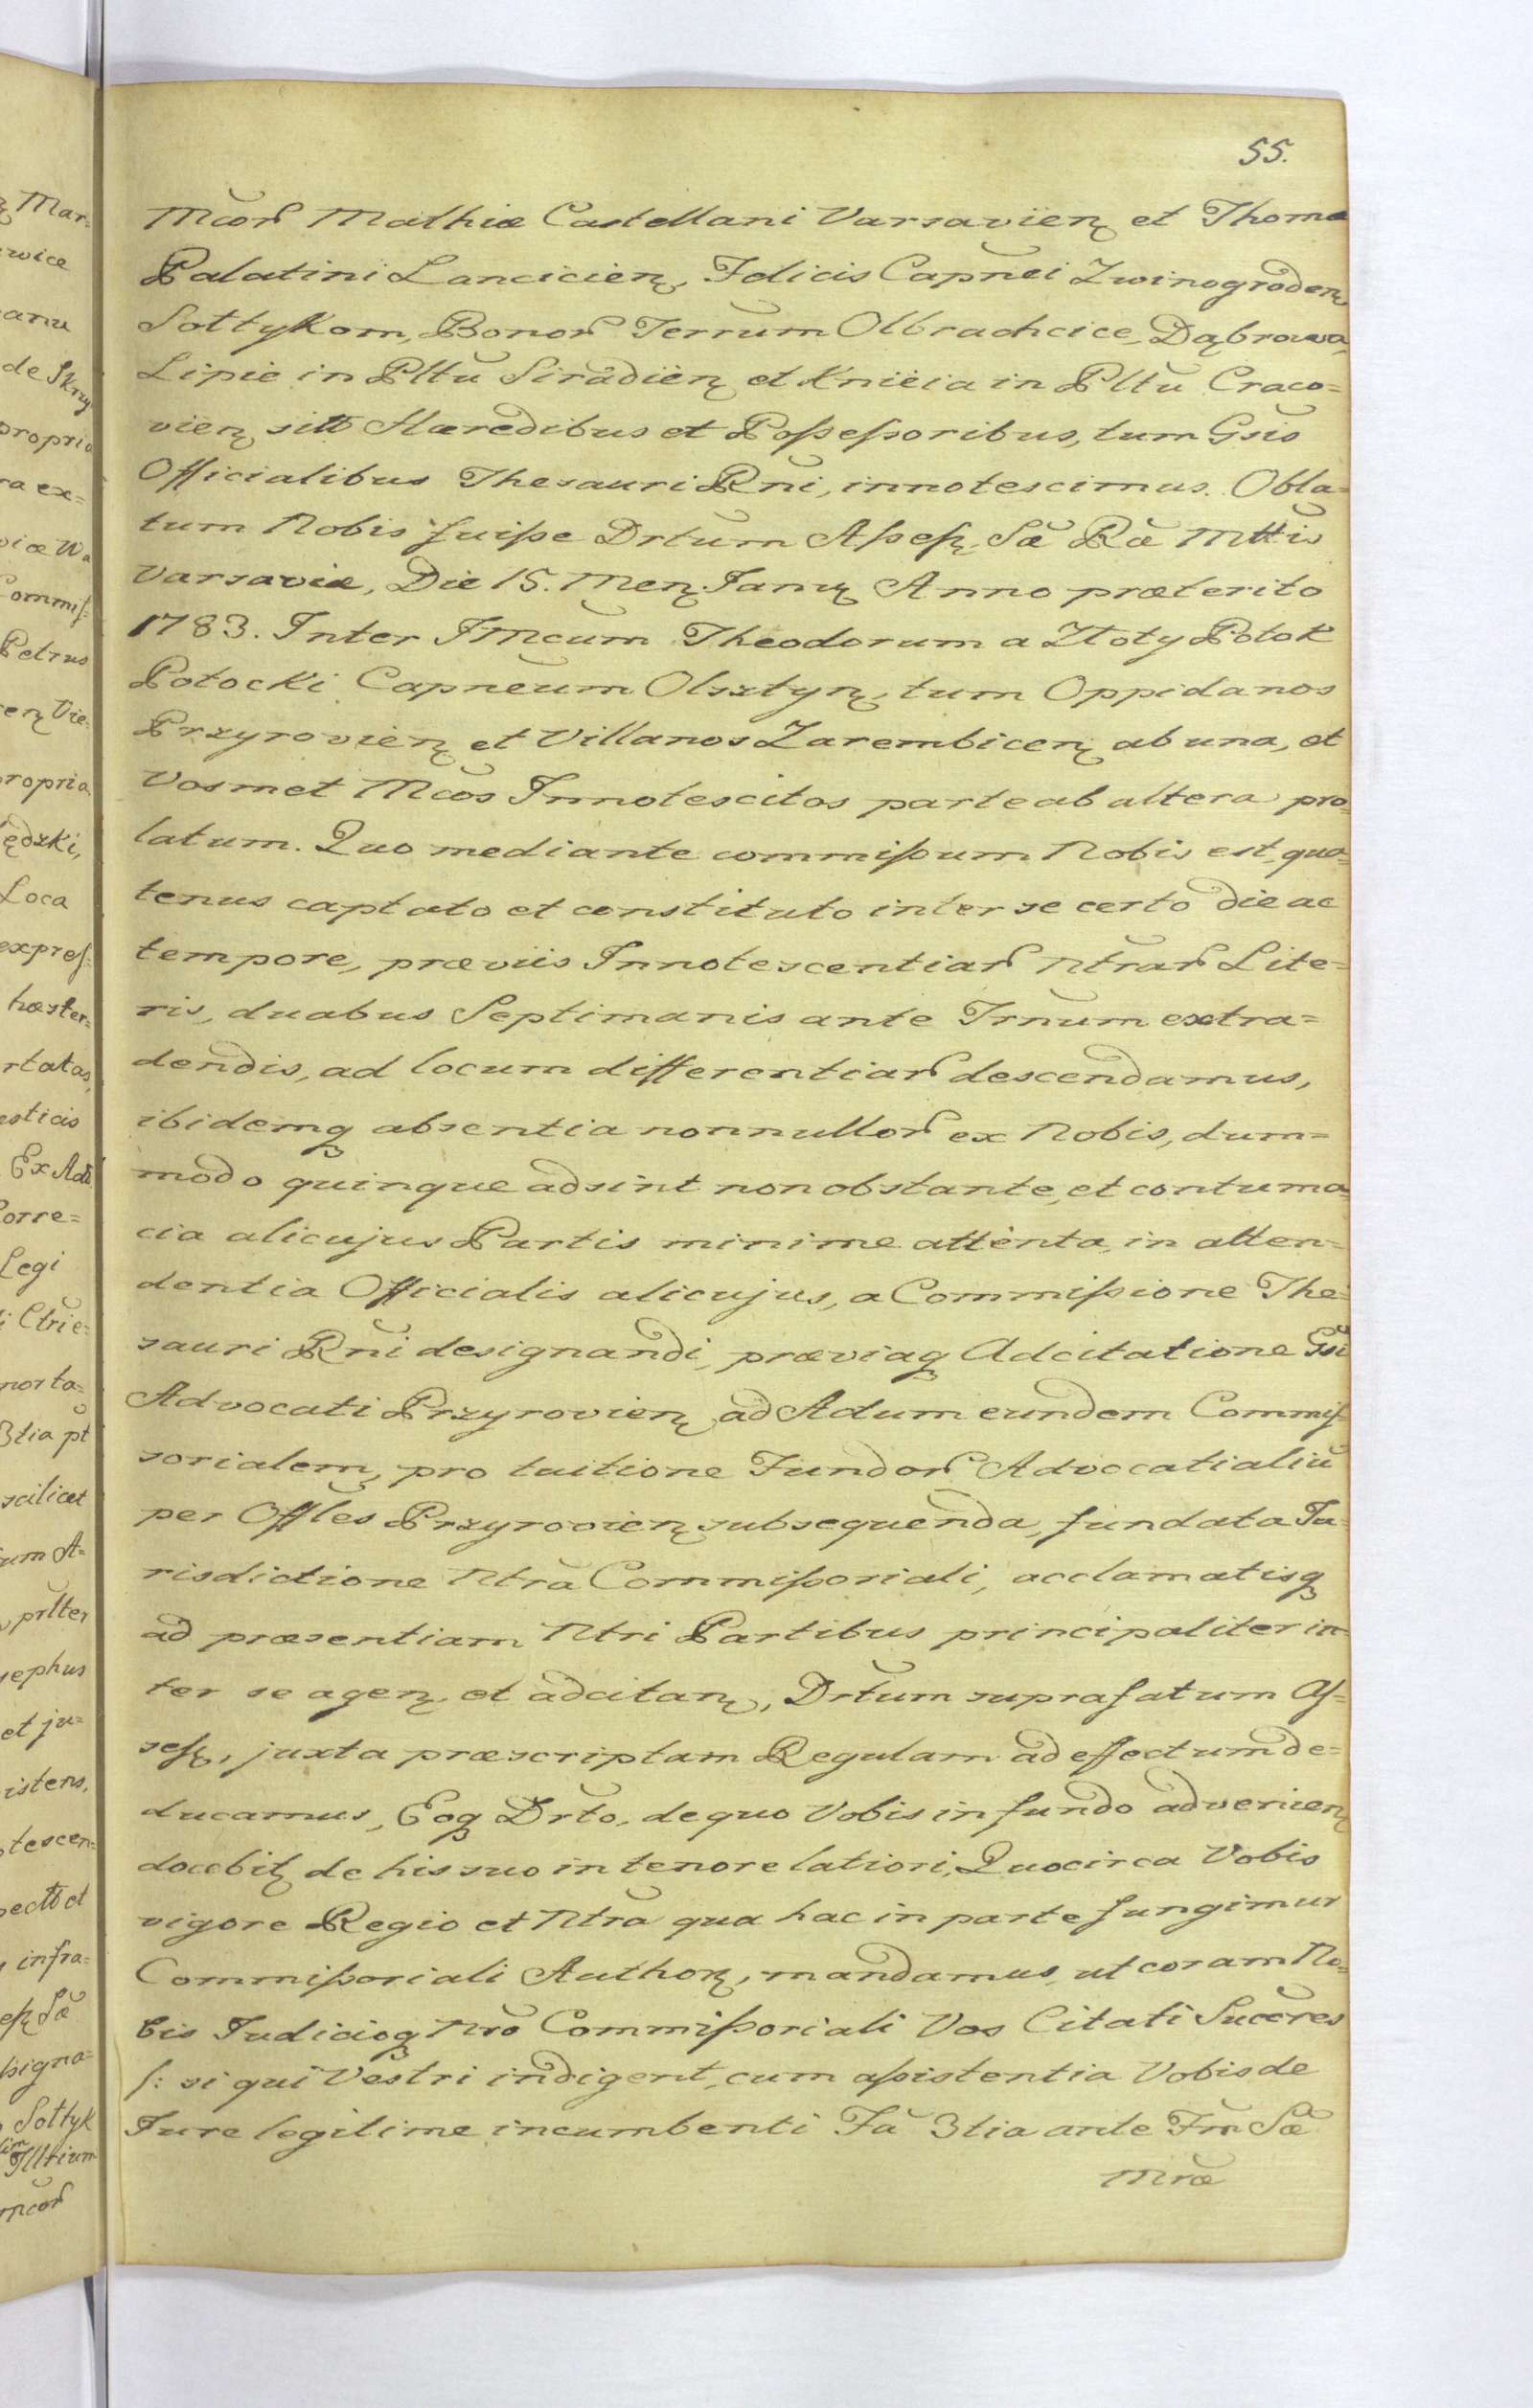 55.
Mcor̃ Mathiæ Castellani Varsavien̨ et Thomæ
Palatini Lancicien̨, Felicis Capñei Zwinogroden̨
Sołtykom, Bonor̃ Terrum Olbrachcice, Dąbrowa,
Lipie in Pltũ Siradien̨ et Knieia in Pltũ Craco=
vien̨ sitt Hæredibus et Poſseſsoribus, tum Gsis
Officialibus Thesauri Rñi, innotescimus. Obla=
tum Nobis fuiſse Drtũm Aſseſs. Sæ̃ Ræ̃ Mttis
Varsaviæ, Die 15. Men̨. Januᶒ Anno præterito
1783. Inter JMcum Theodorum a Złoty Potok
Potocki Capnẽum Olsztyn̨, tum Oppidanos
Przyrovien̨ et Villanos Zarembicen̨ ab una, et
Vosmet Mcõs Innotescitos parte ab altera pro=
latum. Quo mediante commiſsum Nobis est, qua=
tenus captato et constituto inter se certo die ac
tempore, præviis Innotescentiar̃ Ntrar̃ Lite=
ris, duabus Septimanis ante Trñum extra=
dendis, ad locum differentiar̃ descendamus,
ibidemq̨ absentia nonnullor̃ ex Nobis, dum=
modo quinque adsint non obstante, et contuma=
cia alicujus Partis minime attenta, in atten=
dentia Officialis alicujus, a Commiſsione The=
sauri Rñi designandi, præviaq̨ Adcitatione Gsi
Advocati Przyrovien̨ ad Actum eundem Commiſ=
sorialem, pro tuitione Fundor̃ Advocatialiũ
per Offles Przyrovien̨ subsequenda, fundata Ju=
risdictione Ntrã Commiſsoriali, acclamatisq̨
ad præsentiam Ntri Partibus principaliter in=
ter se agen̨ et adcitan̨, Drtũm suprafatum Aſ=
seſs̨, juxta præscriptam Regulam ad effectum de=
ducamus, Eoq̨ Drto, de quo Vobis in fundo advenien̨
docebit̨ de his suo in tenore latiori, Quocirca Vobis
vigore Regio et Ntrã qua hac in parte fungimur
Commiſsoriali Author̨, mandamus, ut coram No=
bis Judicioq̨ Nrõ Commiſsoriali Vos Citati Succres
/: si qui Vestri indigent, cum aſsistentia Vobis de
Jure legitime incumbenti Fã 3tia ante Fm̃ Sæ̃
Mræ̃